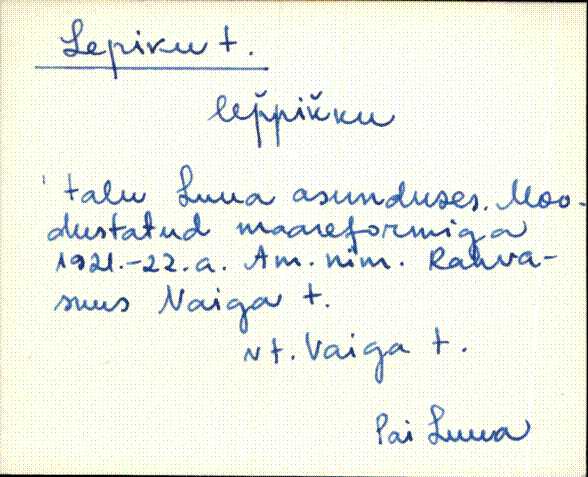 Lepiku t.
lep̆pik̆ku
talu Luua asunduses. Moo-
dustatud maareformiga
1921.-22.a. Am. nim. Rahva-
suus Vaiga t.
vt. Vaiga t.
Pai Luua